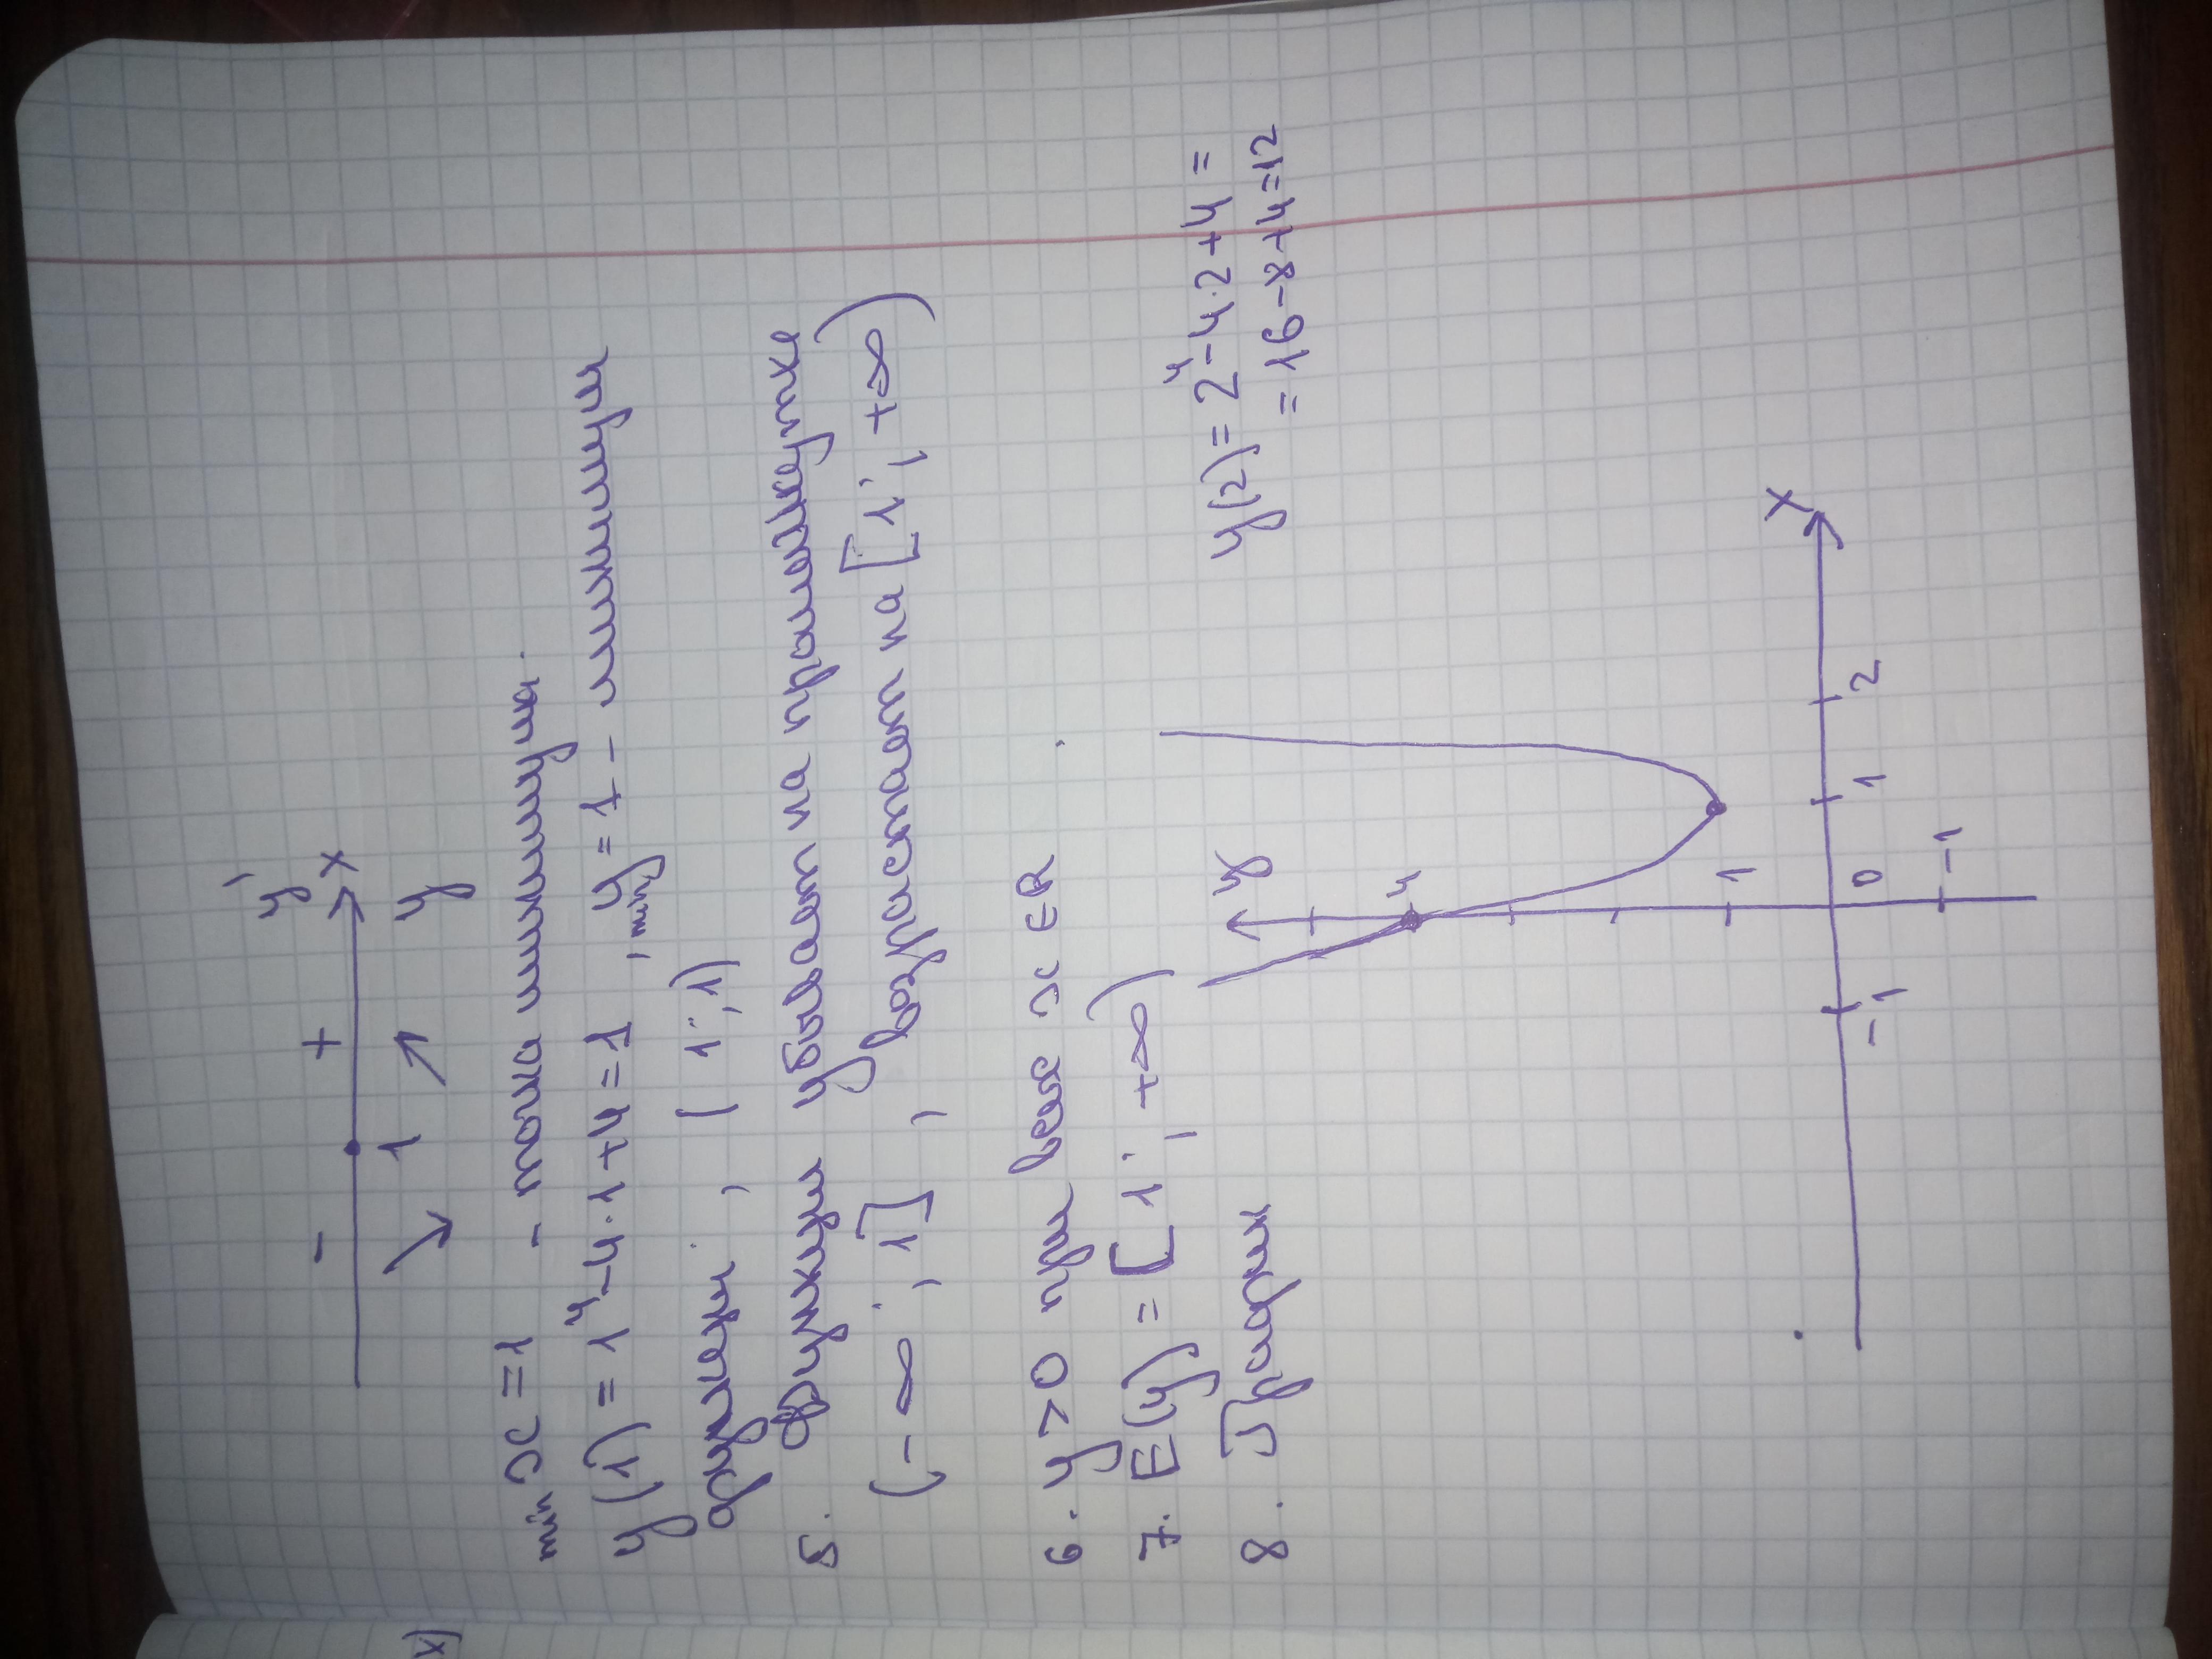 y'
- + x
1 y
min x = 1 - точка минимума.
y(1) = 1⁴-4·1+4=1, min y = 1 - минимум
функции, (1;1)
5. функции убывает на промежутке
(-∞; 1], возрастает на [1; +∞)
6. y>0 при всех x ∈ R
7. E(y) = [1; +∞)
8. График
y(2) = 2⁴-4·2+4 =
= 16-8+4=12
y
4
1
-1 0 1 2 x
-1
x)